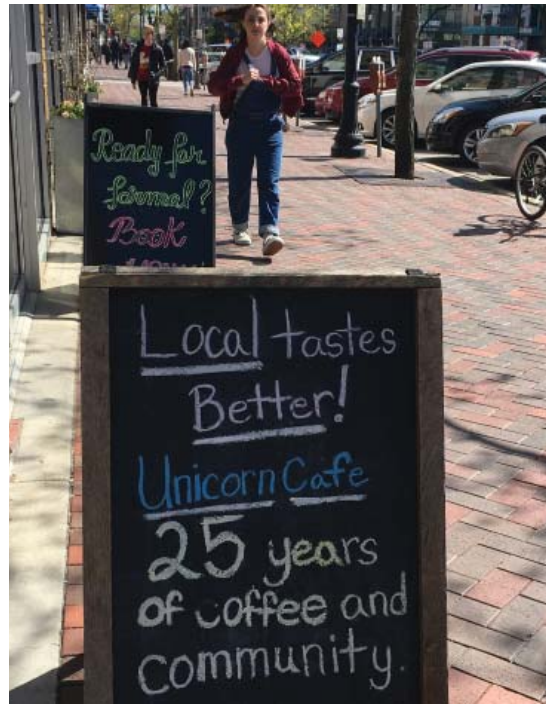 Ready for
formal?
Book
Local tastes
Better!
Unicorn Cafe
25 years
of coffee and
community.